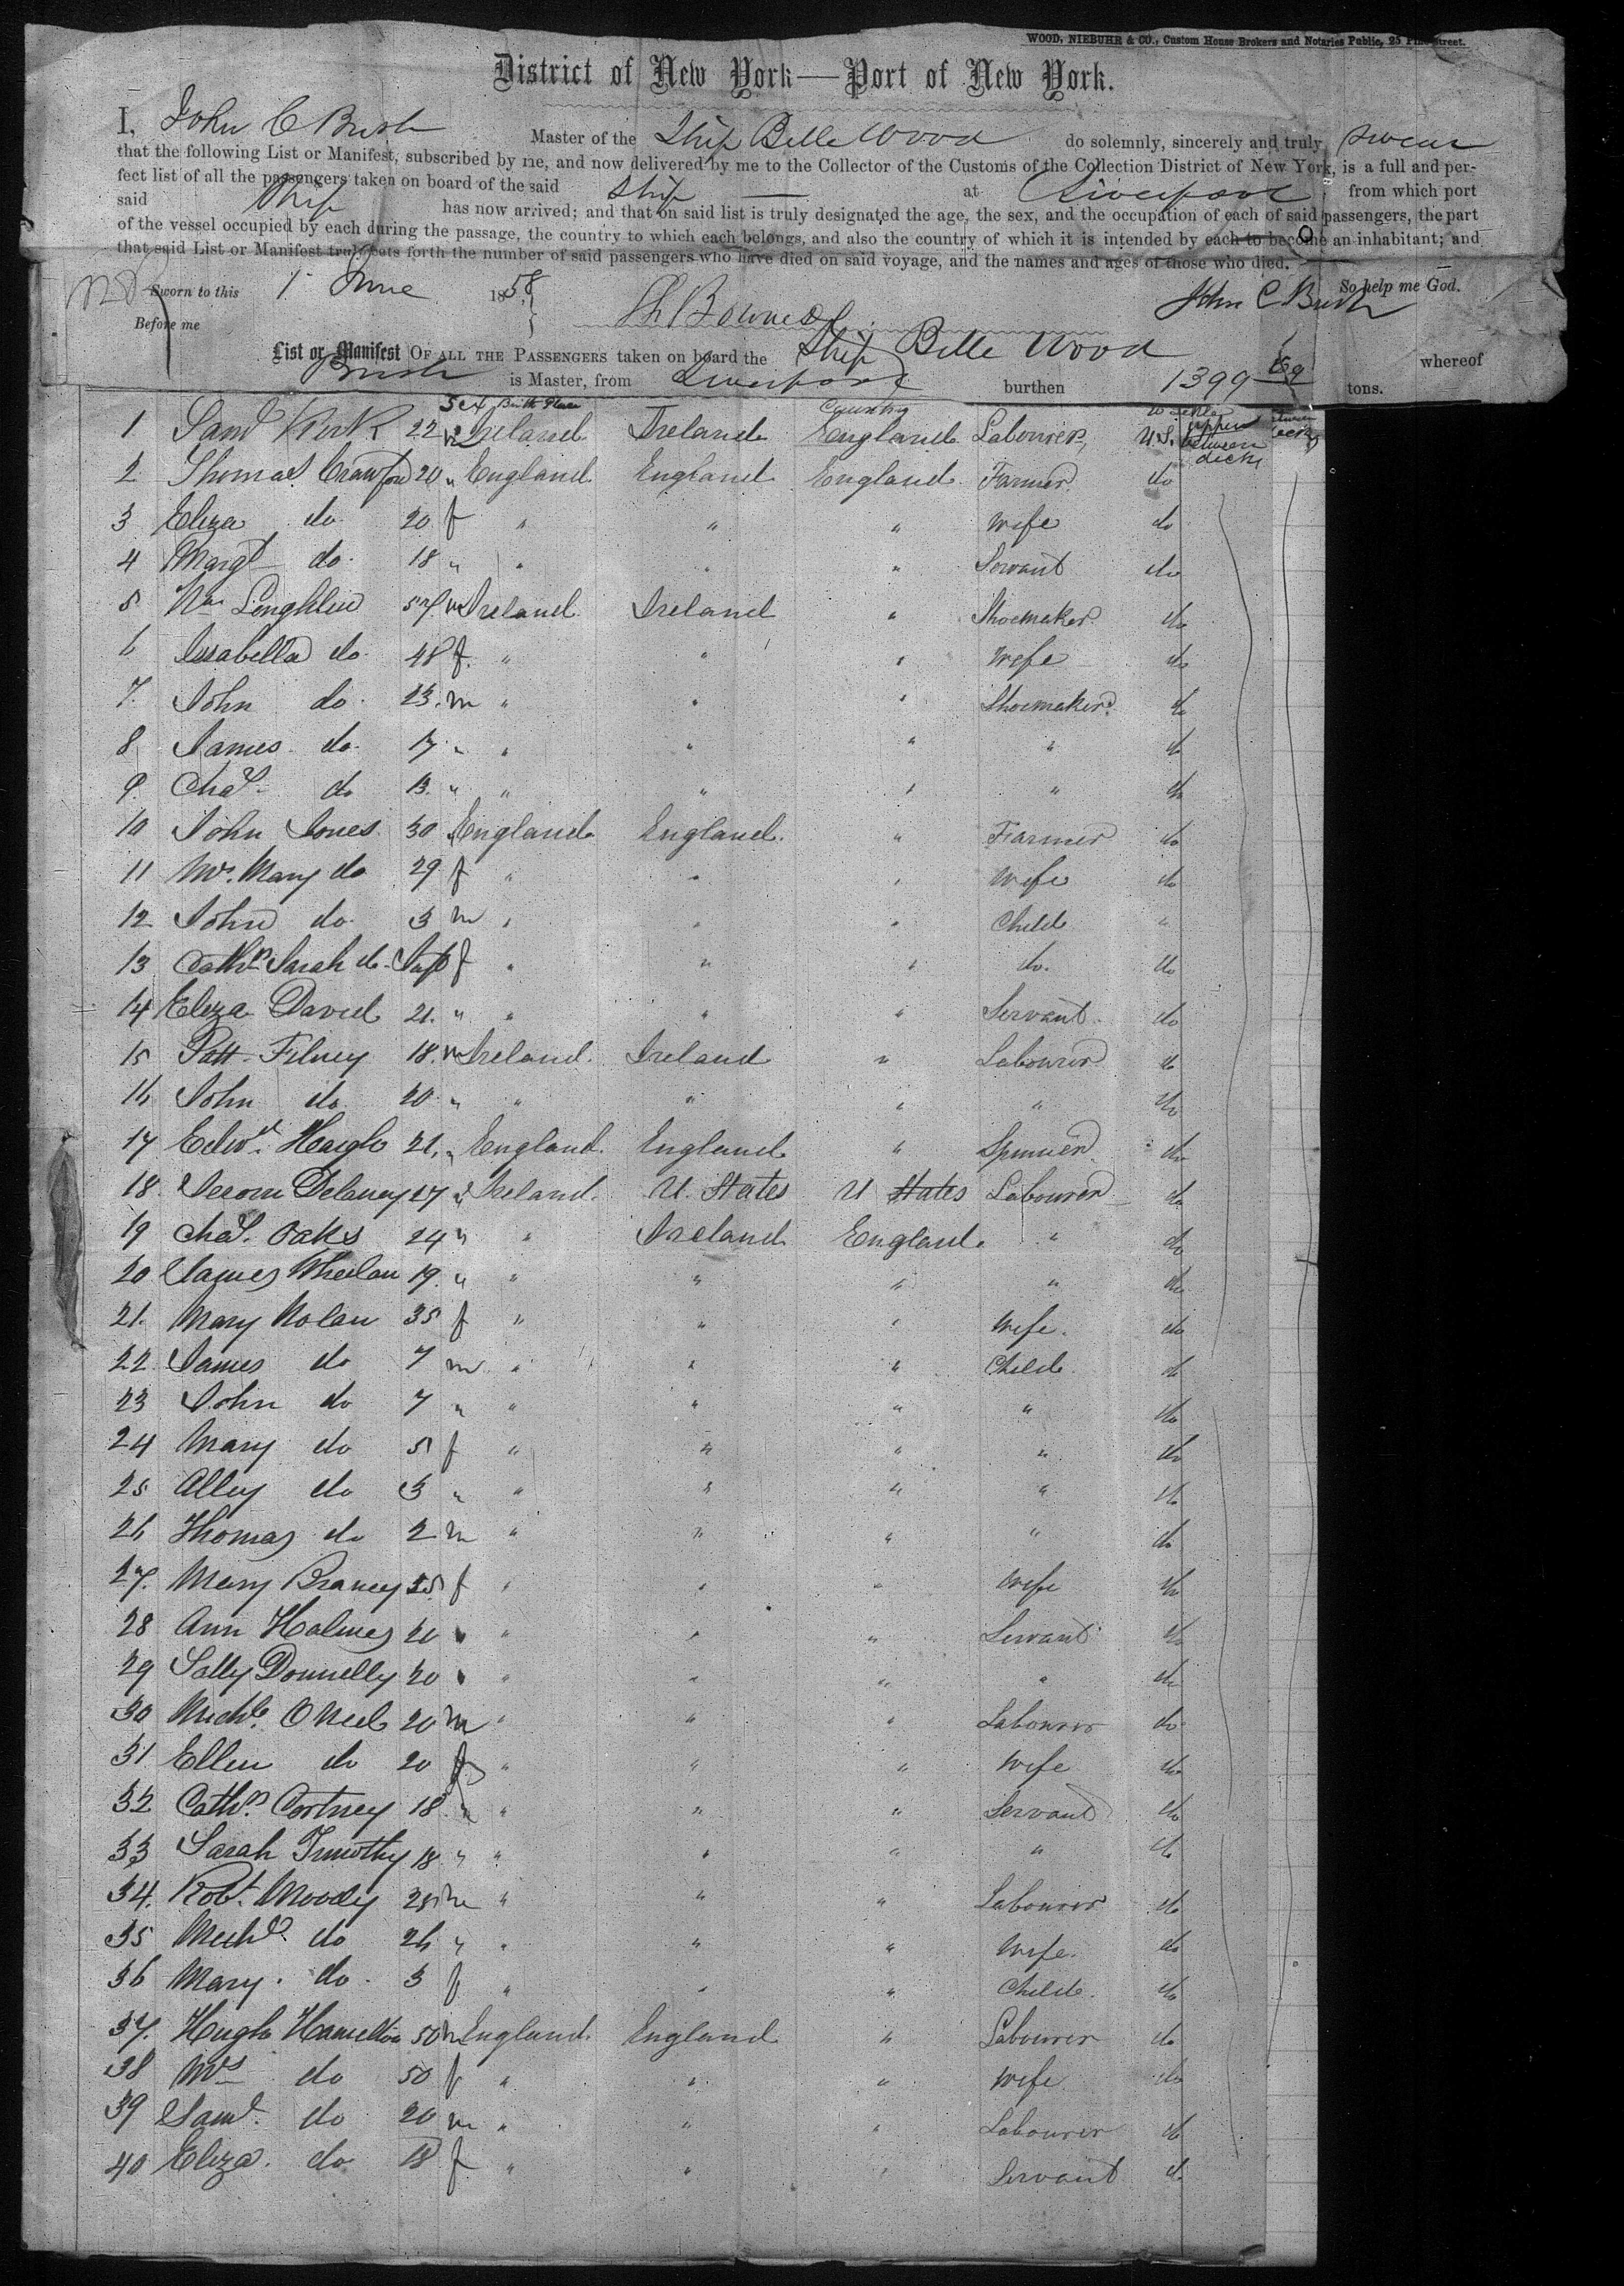 WOOD, NIEBUHR & CO., Custom House Brokers and Notaries Public, 25 Pine Street.
District of New York—Port of New York.
I, John C Bush Master of the Ship Belle Wood do solemnly, sincerely and truly swear
that the following List or Manifest, subscribed by me, and now delivered by me to the Collector of the Customs of the Collection District of New York, is a full and per-
fect list of all the passengers taken on board of the said Ship at Liverpool from which port
said Ship has now arrived; and that on said list is truly designated the age, the sex, and the occupation of each of said passengers, the part
of the vessel occupied by each during the passage, the country to which each belongs, and also the country of which it is intended by each to become an inhabitant; and
that said List or Manifest truly sets forth the number of said passengers who have died on said voyage, and the names and ages of those who died. 0
Sworn to this 1 June 1858 So help me God.
Before me John C Bush
List or Manifest OF ALL THE PASSENGERS taken on board the Ship Belle Wood whereof
Bush is Master, from Liverpool burthen 1399 tons.
Sex Birth Place Country
1 Saml Kirk 22 m Ireland Ireland England Labourer U.S. upper between decks
2 Thomas Crawford 20 " England England England Farmer do
3 Eliza do 20 f " " " Wife do
4 Margt do 18 " " " " Servant do
5 Loughlin 57 m Ireland Ireland " Shoemaker do
6 Issabella do 48 f " " " Wife do
7 John do 23 m " " " Shoemaker do
8 James do 17 " " " " " do
9 Chas do 13 " " " " " do
10 John Jones 30 England England " Farmer do
11 Mrs. Mary do 29 f " " " Wife do
12 John do 3 m " " " Child "
13 Cathn Sarah do Inft f " " " do. do
14 Eliza David 21 " " " " Servant do
15 Patt 18 m Ireland Ireland " Labourer do
16 John do 20 " " " " " do
17 Edwd. Haigh 21 " England England " Spinner do
18 Delaney 27 " Ireland U. States U States Labourer do
19 Chas. Oaks 24 " " Ireland England " do
20 James Wheelan 19 " " " " " do
21 Mary Nolan 35 f " " " Wife do
22 James do 7 m " " " Child do
23 John do 7 " " " " " do
24 Mary do 5 f " " " " do
25 Alley do 3 " " " " " do
26 Thomas do 2 m " " " " do
27 Mary f " " " Wife do
28 Ann Holmes 20 " " " " Servant do
29 Sally Donnelly 20 " " " " " do
30 Michl. O Neil 20 m " " " Labourer do
31 Ellen do 20 f " " " Wife do
32 Cathn Cortney 18 " " " " Servant do
33 Sarah Timothy 18 " " " " " do
34 Robt. Moody 25 m " " " Labourer do
35 Michl do 26 " " " " Wife do
36 Mary do 3 f " " " Child do
37 Hugh Hamilton 50 m England England " Labourer do
38 Mrs do 50 f " " " Wife do
39 Saml. do 20 m " " " Labourer do
40 Eliza do 18 f " " " Servant do